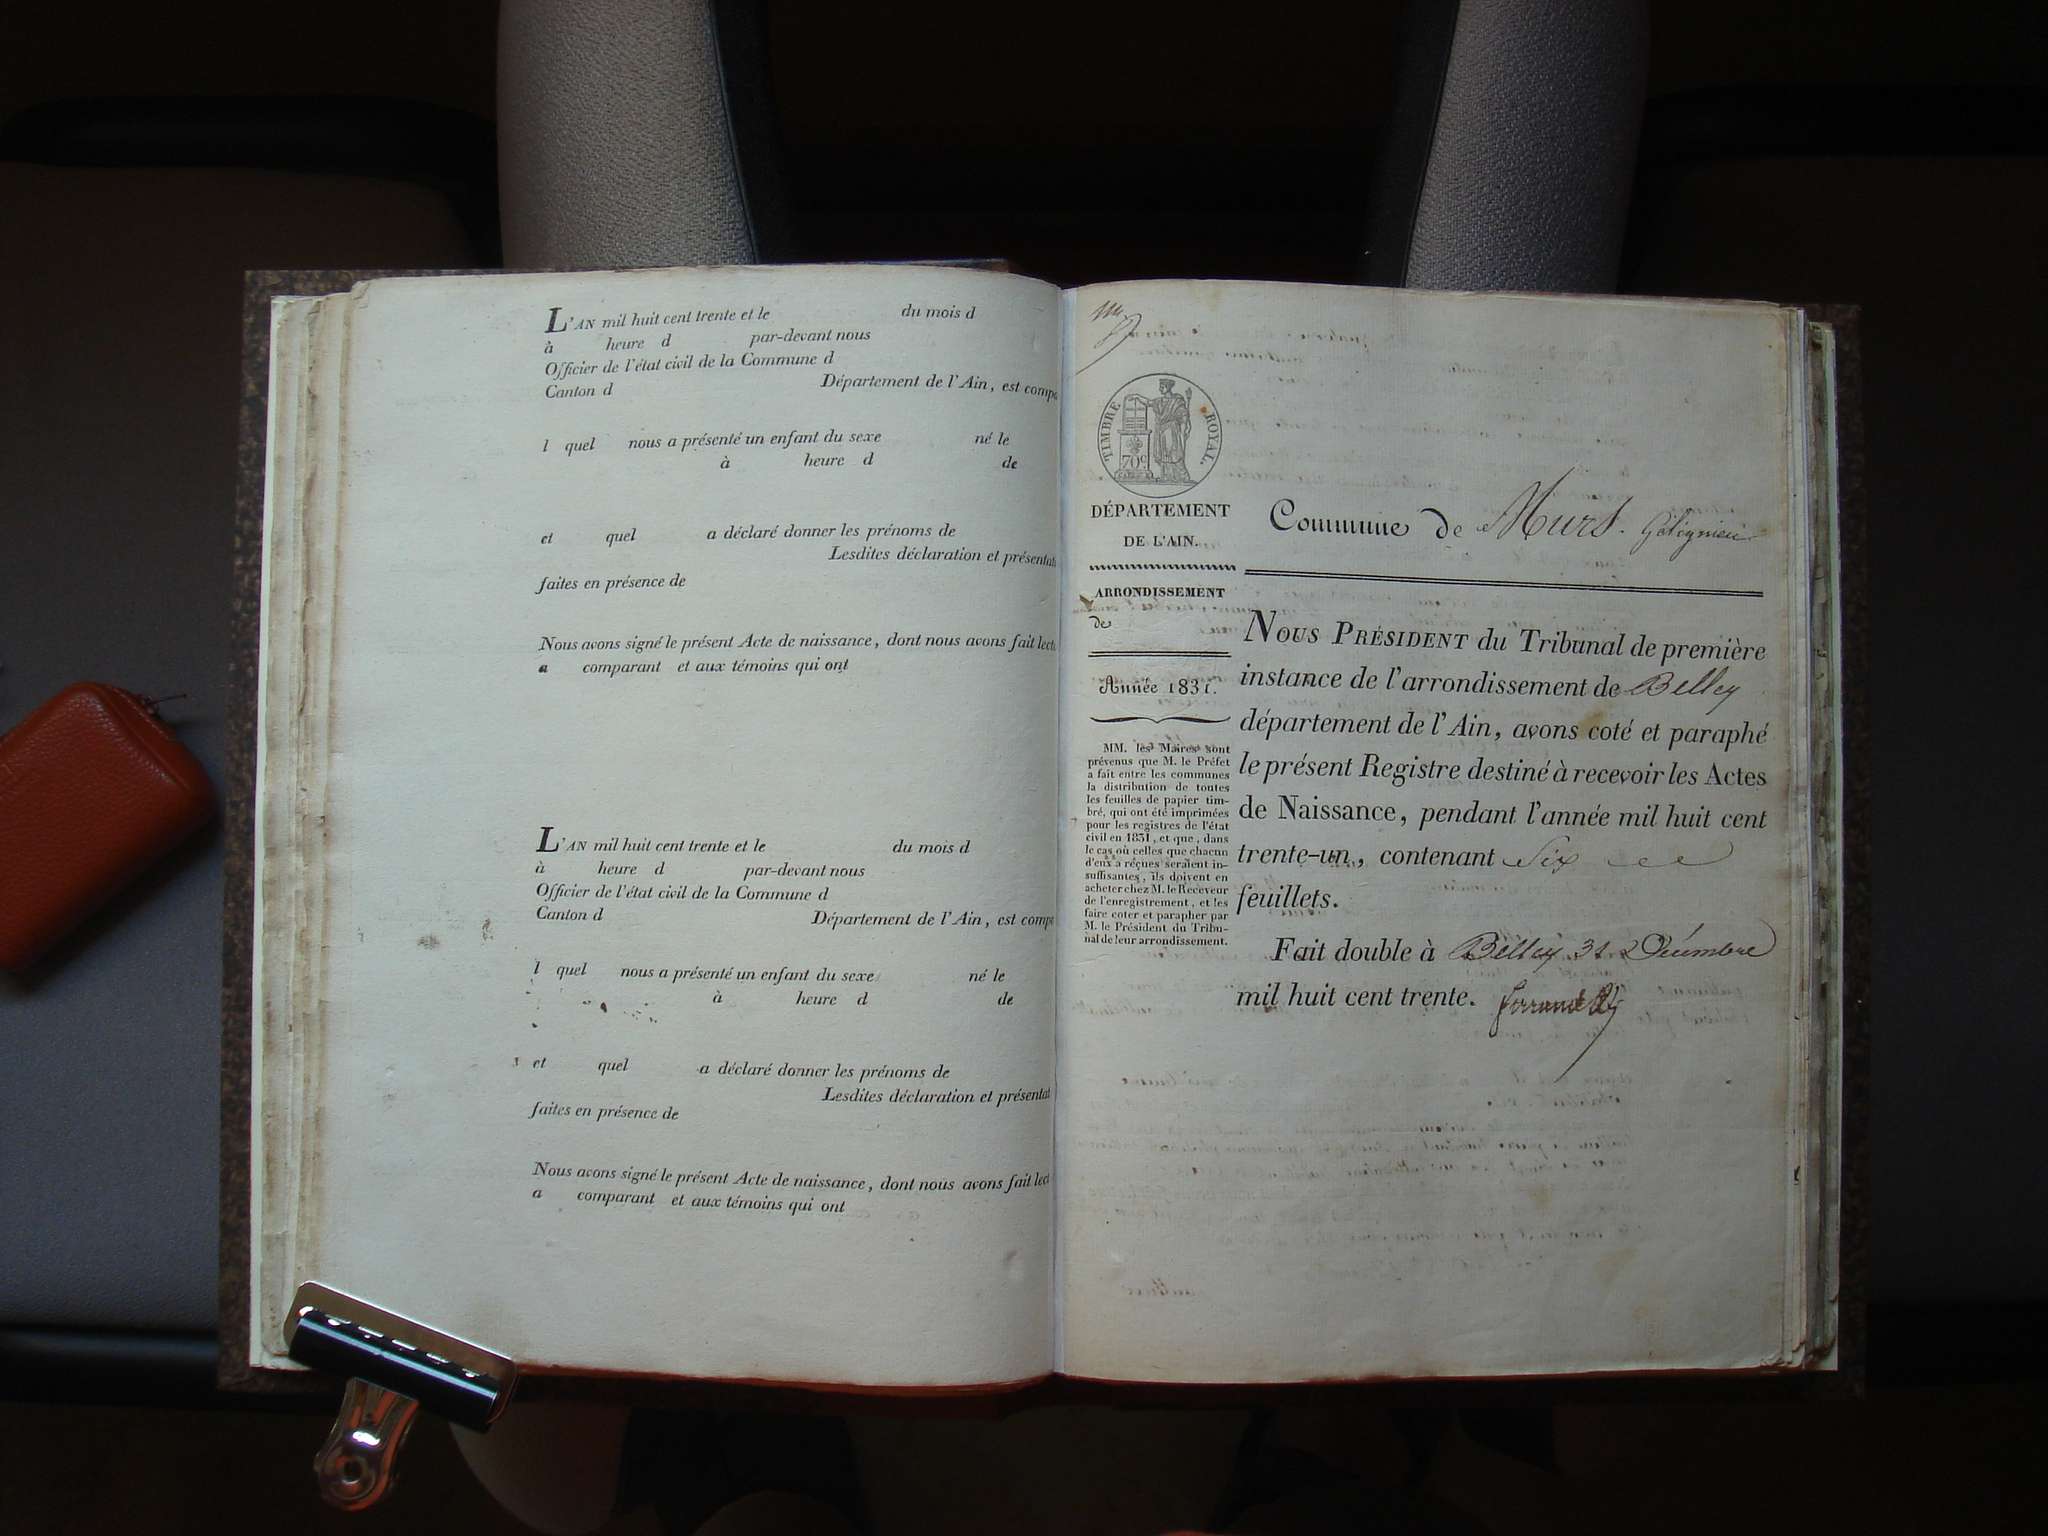 L'AN mil huit cent trente et le du mois d
à heure d par-devant nous
Officier de l'état civil de la Commune d
Canton d Département de l'Ain, est compa
l quel nous a présenté un enfant du sexe né le
à heure d de
et quel a déclaré donner les prénoms de
Lesdites déclaration et présentati
faites en présence de
Nous avons signé le présent Acte de naissance, dont nous avons fait lect
a comparant et aux témoins qui ont
L'AN mil huit cent trente et le du mois d
à heure d par-devant nous
Officier de l'état civil de la Commune d
Canton d Département de l'Ain, est compa
l quel nous a présenté un enfant du sexe né le
à heure d de
et quel a déclaré donner les prénoms de
Lesdites déclaration et présentat
faites en présence de
Nous avons signé le présent Acte de naissance, dont nous avons fait lect
a comparant et aux témoins qui ont
TIMBRE ROYAL.
70c
DÉPARTEMENT
DE L'AIN.
ARRONDISSEMENT
de
Année 1831.
MM. les Maires sont
prévenus que M. le Préfet
a fait entre les communes
la distribution de toutes
les feuilles de papier tim-
bré, qui ont été imprimées
pour les registres de l'état
civil en 1831, et que, dans
le cas où celles que chacun
d'eux a reçues seraient in-
suffisantes, ils doivent en
acheter chez M. le Receveur
de l'enregistrement, et les
faire coter et parapher par
M. le Président du Tribu-
nal de leur arrondissement.
Commune de Murs. Gélignieu
NOUS PRÉSIDENT du Tribunal de première
instance de l'arrondissement de Belley
département de l'Ain, avons coté et paraphé
le présent Registre destiné à recevoir les Actes
de Naissance, pendant l'année mil huit cent
trente-un, contenant Six
feuillets.
Fait double à Belley 31 Décembre
mil huit cent trente.